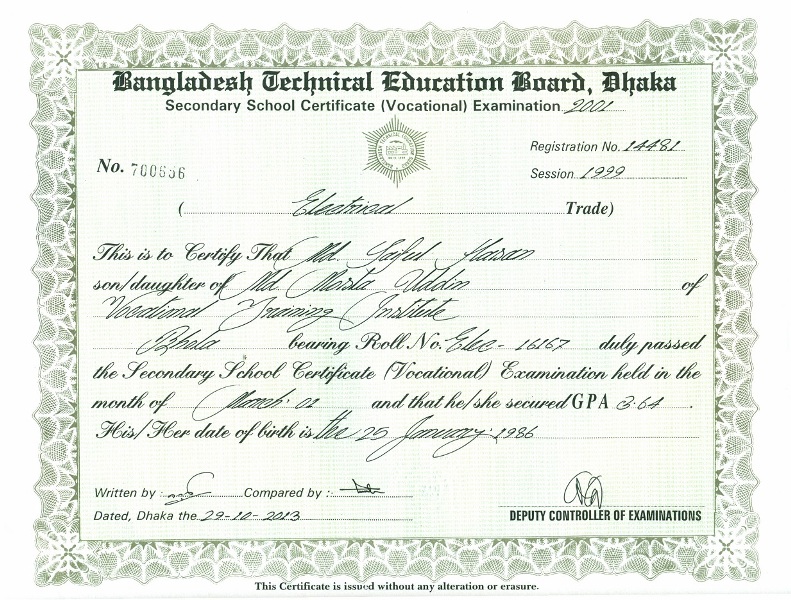 Bangladesh Technical Education Board, Dhaka
Secondary School Certificate (Vocational) Examination 2001
Registration No. 14481
No. 700656
Session 1999
(Electrical Trade)
This is to Certify That Md. Saiful Hasan
son/daughter of Md Mosta Uddin of
Vocational Training Institute
Bhola bearing Roll No. Elec- 16167 duly passed
the Secondary School Certificate (Vocational) Examination held in the
month of March. 01 and that he/she secured GPA 3.64.
His/Her date of birth is the 25 January. 1986
Written by : Compared by :
Dated, Dhaka the 29-10-2013
DEPUTY CONTROLLER OF EXAMINATIONS
This Certificate is issued without any alteration or erasure.